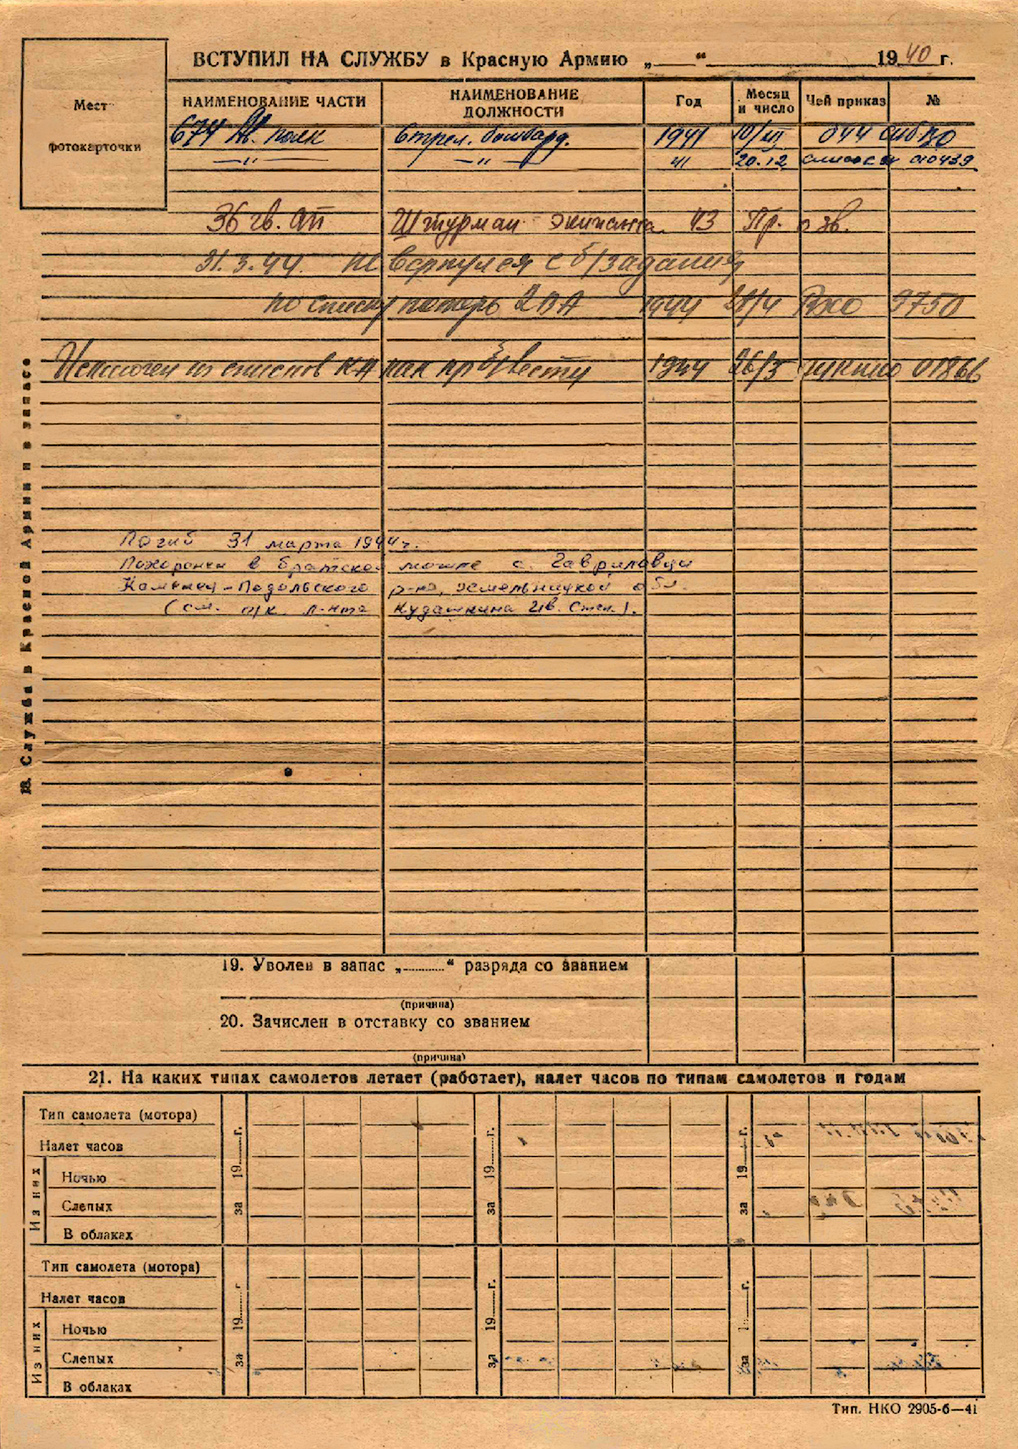 ВСТУПИЛ НА СЛУЖБУ в Красную Армию „ “ 1940 г.
Мест
фотокарточки
НАИМЕНОВАНИЕ ЧАСТИ НАИМЕНОВАНИЕ ДОЛЖНОСТИ Год Месяц и число Чей приказ №
674 Ав. полк Стрел. бомбард. 1941 10/III 044
—"— —"— 41 20.12 010439
36 гв. ап Штурман экипажа 43 Пр. о зв.
31.3.44. не вернулся с б/задания
по списку потерь 2 ВА 1944 21/4 9750
Исключен из списков КА как пр. без вести 1944 26/5 гукнко 01866
18. Служба в Красной Армии и в запасе
Погиб 31 марта 1944 г.
Похоронен в братской могиле с. Гавриловцы
Каменец-Подольского р-на, Хмельницкой обл.
(см. л-нта Кудашкина Ив. Степ.).
19. Уволен в запас „ “ разряда со званием
(причина)
20. Зачислен в отставку со званием
(причина)
21. На каких типах самолетов летает (работает), налет часов по типам самолетов и годам
Тип самолета (мотора)
Налет часов
Из них
Ночью
Слепых
В облаках
за 19 г.
за 19 г.
за 19 г.
Тип самолета (мотора)
Налет часов
Из них
Ночью
Слепых
В облаках
за 19 г.
за 19 г.
за 1 г.
Тип. НКО 2905-б—41